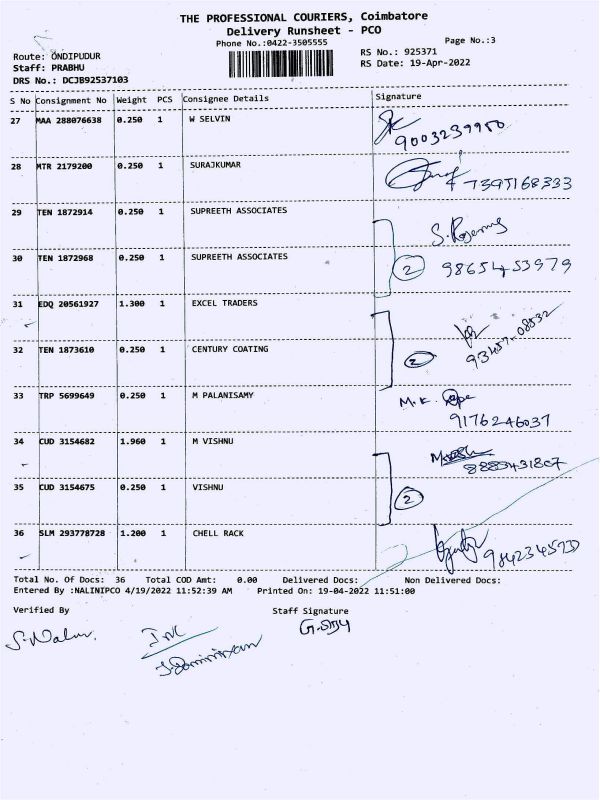 THE PROFESSIONAL COURIERS, Coimbatore
Delivery Runsheet - PCO
Phone No.:0422-3505555
Page No.:3
Route: ONDIPUDUR
RS No.: 925371
Staff: PRABHU
RS Date: 19-Apr-2022
DRS No.: DCJB92537103
S No Consignment No Weight PCS Consignee Details Signature
27 MAA 288076638 0.250 1 W SELVIN
9003239950
28 MTR 2179200 0.250 1 SURAJKUMAR
7395168333
29 TEN 1872914 0.250 1 SUPREETH ASSOCIATES
30 TEN 1872968 0.250 1 SUPREETH ASSOCIATES
2 98654 53979
31 EDQ 20561927 1.300 1 EXCEL TRADERS
93457-08532
32 TEN 1873610 0.250 1 CENTURY COATING
2
33 TRP 5699649 0.250 1 M PALANISAMY M.K.
9176246037
34 CUD 3154682 1.960 1 M VISHNU
35 CUD 3154675 0.250 1 VISHNU
2
36 SLM 293778728 1.200 1 CHELL RACK
Total No. Of Docs: 36 Total COD Amt: 0.00 Delivered Docs: Non Delivered Docs:
Entered By :NALINIPCO 4/19/2022 11:52:39 AM Printed On: 19-04-2022 11:51:00
Verified By Staff Signature